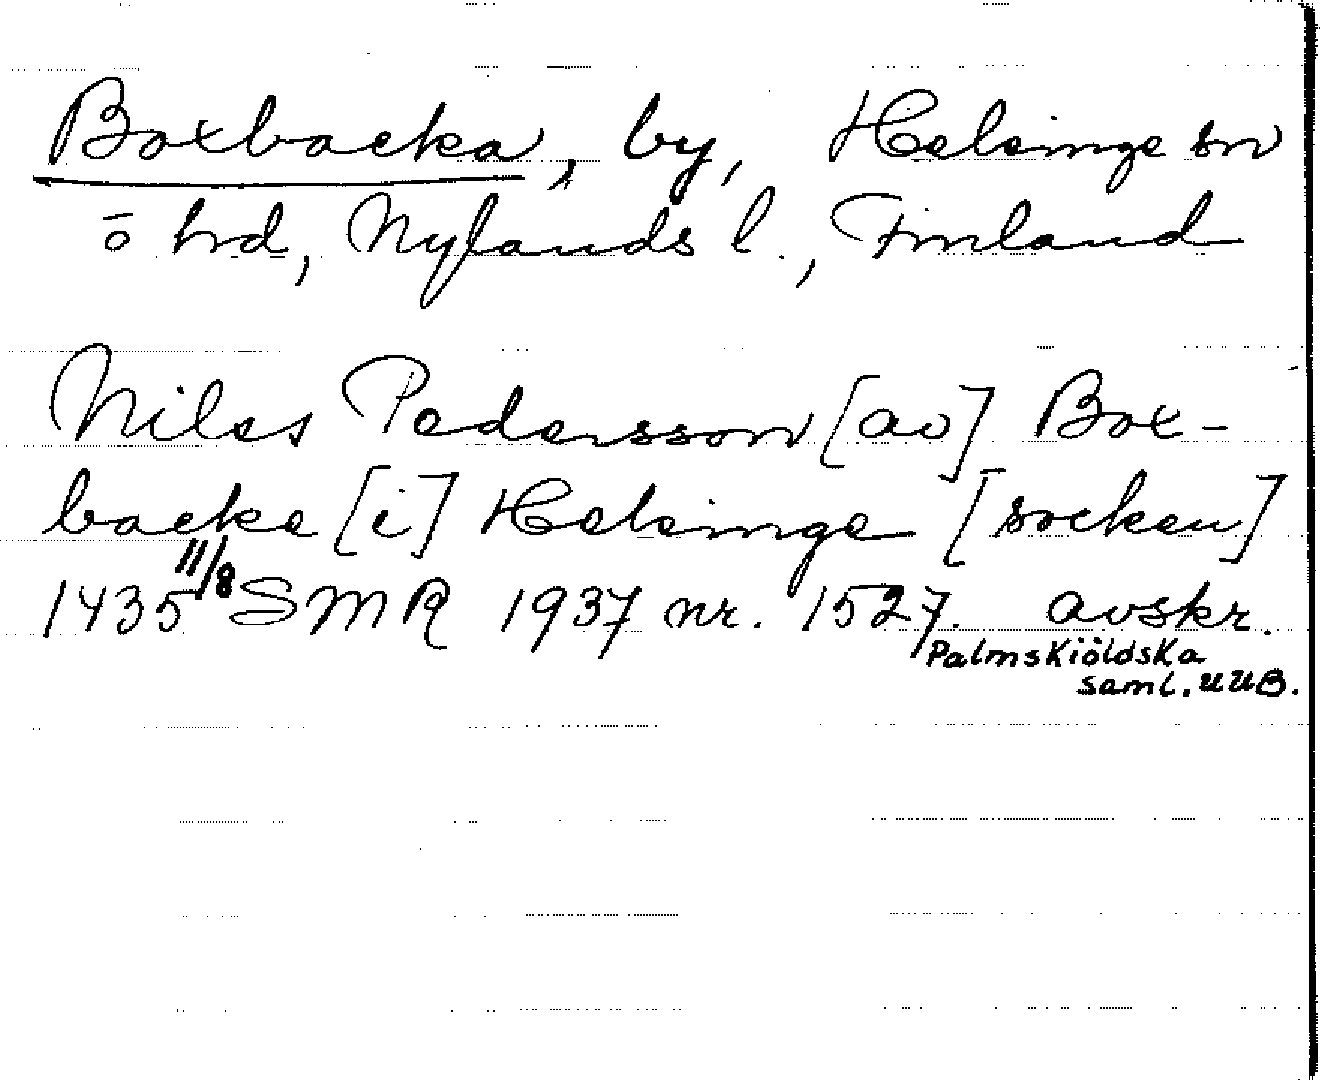 Boxbacka, by, Helsinge sn
ō hrd, Nylands l., Finland
Niles Pedersson [av] Box-
backe [i] Helsinge [socken]
1435 11/8 SMR 1937 nr. 1527. avskr.
Palmskiöldska
saml. UUB.